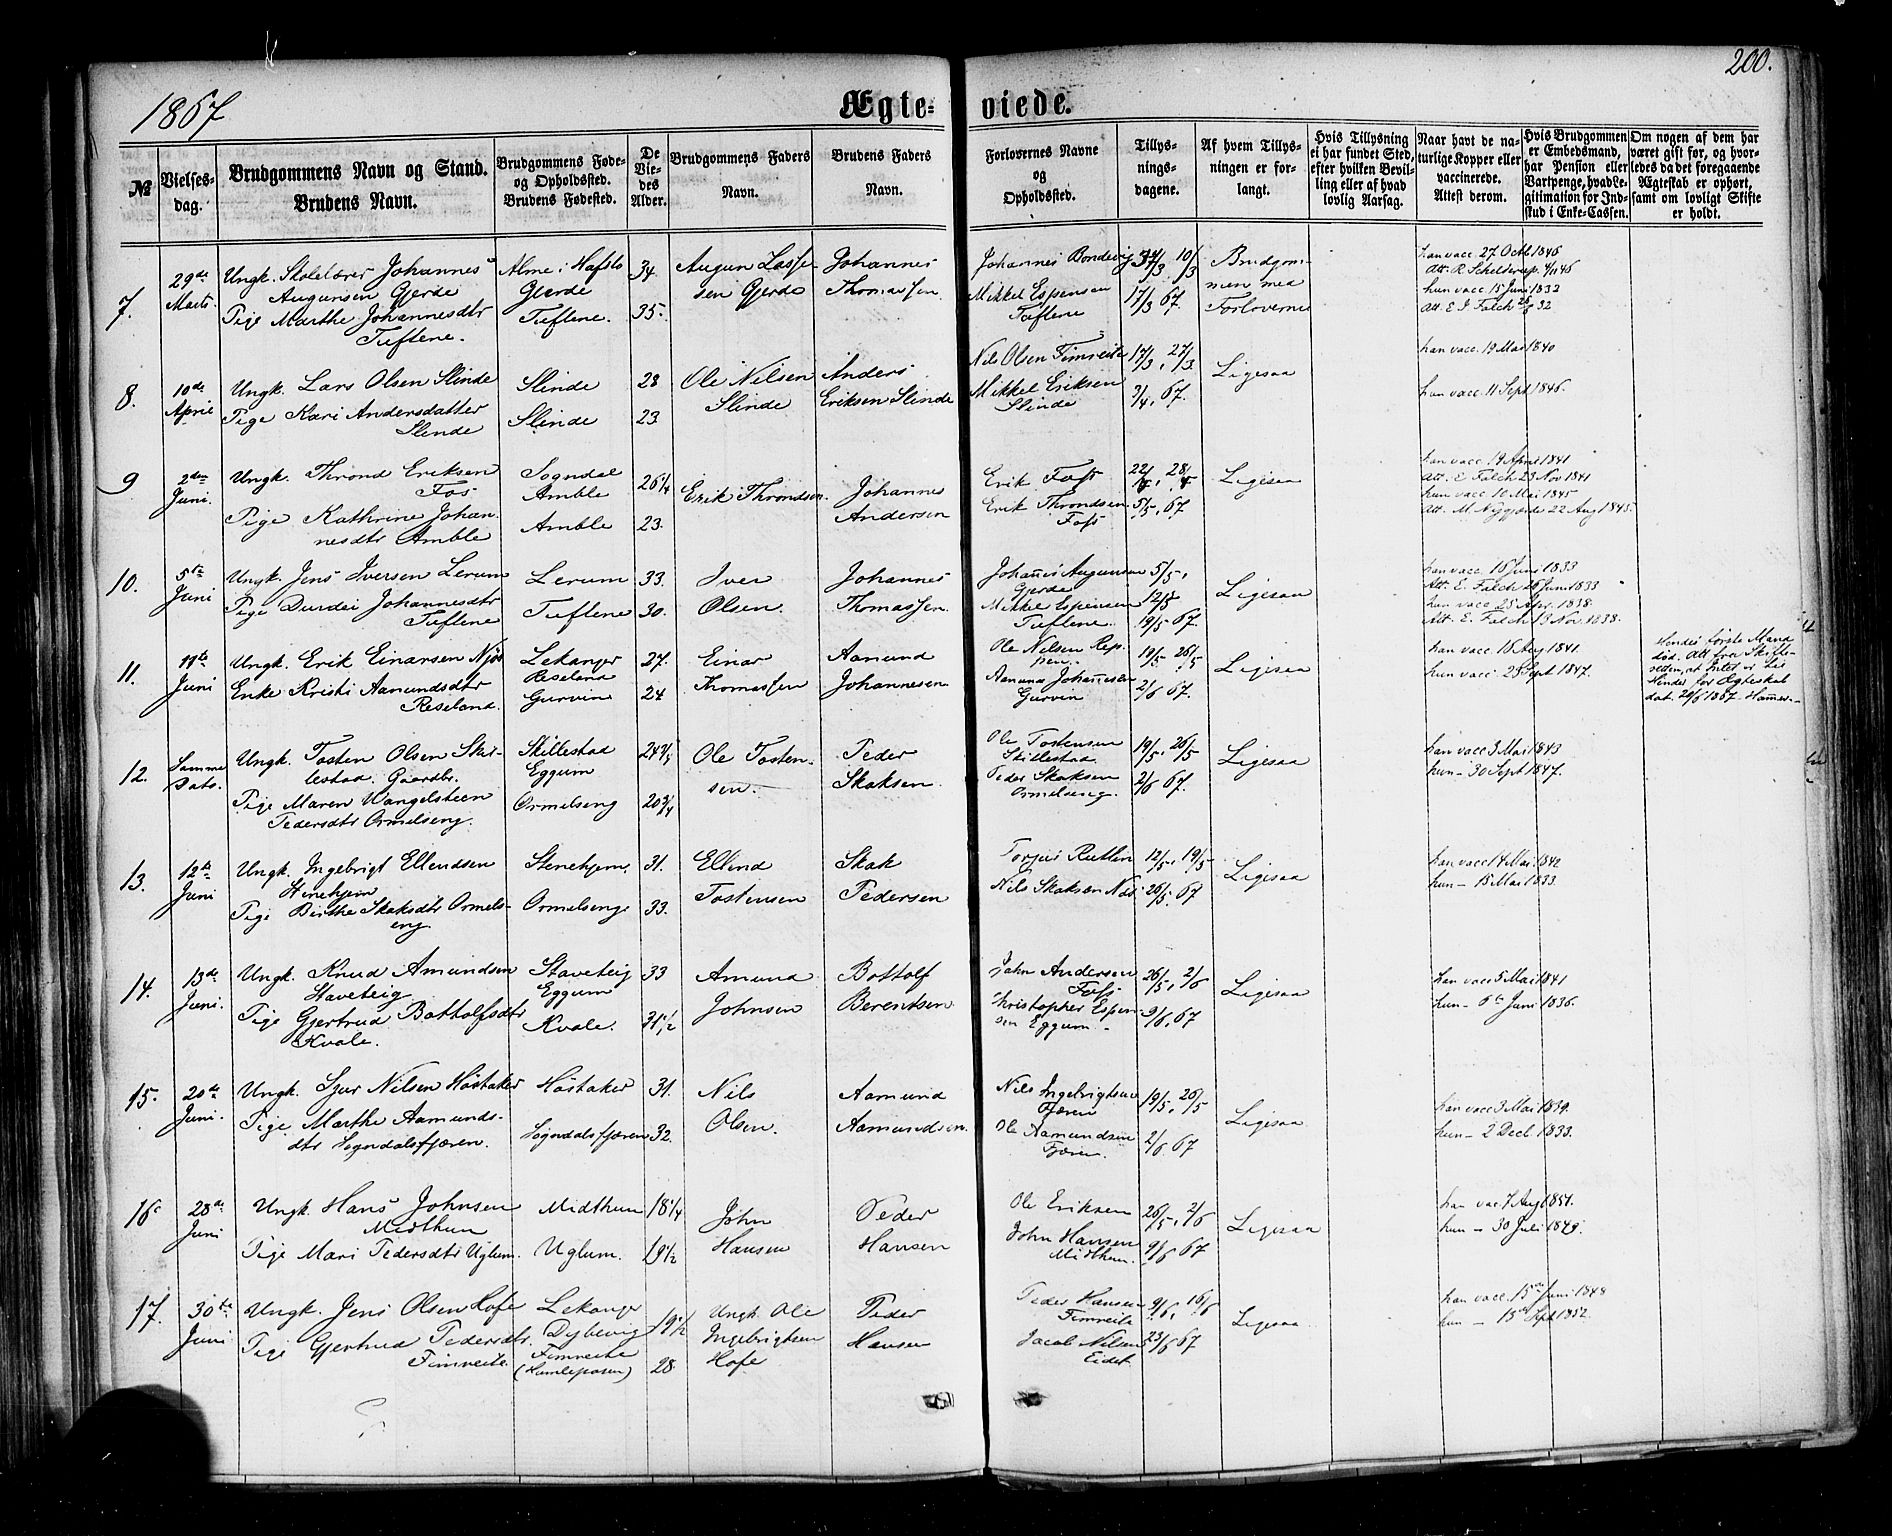 200.
1867
Ægte-
viede.
№
Vielses-
dag.
Brudgommens Navn og Stand.
Brudens Navn.
Brudgommens Føde-
og Opholdssted.
Brudens Fødested.
De
Vie-
des
Alder.
Brudgommens Faders
Navn.
Brudens Faders
Navn.
Forlovernes Navne
og
Opholdssted.
Tillys-
nings-
dagene.
Af hvem Tillys-
ningen er for-
langt.
Hvis Tillysning
ei har fundet Sted,
efter hvilken Bevil-
ling eller af hvad
lovlig Aarsag.
Naar havt de na-
turlige Kopper eller
vaccinerede.
Attest derom.
Hvis Brudgommen
er Embedsmand,
har Pension eller
Vartpenge, hvad Le-
gitimation for Ind-
stud i Enke-Cassen.
Om nogen af dem har
været gift før, og hvor-
ledes da det foregaaende
Ægteskab er ophørt,
samt om lovligt Skifte
er holdt.
7.
29de
Marts
Ungk. Skolelærer Johannes
Augunsen Gjerde
Pige Marthe Johannesdtr
Tuftene.
Alme i Hafslo
Gjerde
Tuftene.
34.
35.
Augun Lasse-
sen Gjerde
Johannes
Thomassen
Johannes Bondevig
Mikkel Espensen
Tuftene
10/3
17/3 67.
Brudgom-
men med
Forloverne
han vacc. 27 Octb. 1846
Att. R. Schelderup 4/11 46
hun vacc. 15 Juni 1832
Att. E. J. Falch 32
8.
10de
April
Ungk. Lars Olsen Slinde
Pige Kari Andersdatter
Slinde
Slinde
Slinde
28
23
Ole Nilsen
Slinde
Anders
Eriksen Slinde
Nils Olsen Fimreite
Mikkel Eriksen
Slinde
17/3, 27/3
3/4, 67.
Ligesaa
han vacc. 19 Mai 1840
han vacc. 11 Sept 1846.
9
2den
Juni.
Ungk. Thrond Eriksen
Fos
Pige Kathrine Johan-
nesdtr Amble
Sogndal
Amble
Amble
26 1/4
23.
Erik Throndsen.
Johannes
Andersen
Erik Foss
Erik Throndsen
Foss
22/4, 28/4
5/5, 67
Ligesaa
han vacc. 19 April 1841
Att. E Falch 23 Nov 1841
hun vacc 10 Mai 1845
Att. M. Nygjærde 22 Aug 1845.
10.
5te
Juni
Ungk. Jens Iversen Lerum
Pige Durdei Johannesdtr
Tuftene
Lerum
Tuftene
33.
30.
Iver
Olsen.
Johannes
Thomassen.
Johannes Augunsen
Gjerde
Mikkel Espensen
Tuftene
5/5,
12/5
19/5 67.
Ligesaa
han vacc. 16 Juni 1833
Att. E. Falch 26 Juni 1833
hun vacc 25 Apr. 1838.
Att. E. Falch 13 Nov. 1838.
11.
11te
Juni
Ungk. Erik Einarsen Njøs
Enke Kristi Aamundsdtr
Reseland.
Lekanger
Reseland
Gurvin
27.
24
Einar
Thomassen
Aamund
Johannesen
Ole Nilsen Rep-
pen.
Aamund Johannesen
Gurvin
19/5, 26/5
2/6 67.
Ligesaa
han vacc. 16 Aug 1841.
hun vacc. 28 Sept 1847.
Hendes første Mand
død. Att fra Skifte-
retten, at Intet er til
Hinder for Ægteskab
dat. 20/5 1867. Hammer.
12.
Samme
Dato.
Ungk. Tosten Olsen Skil-
lestad. Gaardbr.
Pige Maren Wangelsteen
Pedersdtr Ormelseng.
Skillestad
Eggum
Ormelseng
20 3/4
Ole Tosten-
sen.
Peder
Skaksen.
Ole Tostensen
Skillestad
Peder Skaksen
Ormelseng.
19/5, 26/5
2/6 67.
Ligesaa
han vacc 3 Mai 1843
hun - 30 Sept 1847.
13.
12te
Juni
Ungk. Ingebrigt Ellendsen
Stenehjem
Pige Birthe Skaksdtr Ormels-
eng.
Stenehjem.
Ormelseng
31.
33.
Ellend
Tostensen
Skak
Pedersen
Torger Rutlin
Nils Skaksen
12/5, 19/5
26/5, 67
Ligesaa
han vacc 14 Mai 1842
hun - 15 Mai 1833.
14.
13de
Juni.
Ungk. Knud Amundsen
Staveteig
Pige Gjertrud Bottolfsdtr
Kvale.
Staveteig
Eggum
Kvale.
33
31 1/2
Amund
Johnsen
Bottolf
Berentsen
John Andersen
Foss
Christopher Espen-
sen Eggum
26/5, 2/6
9/6, 67
Ligesaa
han vacc 5 Mai 1841
hun - 6te Juni 1836.
15.
20de
Juni.
Ungk. Sjur Nilsen Høstaker
Pige Marthe Aamunds-
dtr Sogndalsfjæren.
Høstaker
Sogndalsfjæren
31.
32.
Nils
Olsen.
Aamund
Aamundsen.
Nils Ingebrigtsen
Fjæren
Ole Aamundsen
Fjæren.
19/5, 26/5
2/6 67
Ligesaa
han vacc 3 Mai 1839.
hun - 2 Decb. 1833.
16
28de
Juni
Ungk. Hans Johnsen
Midthun
Pige Mari Pedersdtr Uglum.
Midthun
Uglum.
18 1/4
19 1/2
John
Hansen
Peder
Hansen
Ole Eriksen
John Hansen
Midthun.
26/5, 2/6
9/6 67
Ligesaa
han vac. 7 Aug 1851.
hun - 30 Juli 1849.
17.
30te
Juni
Ungk. Jens Olsen Hofe
Pige Gjertrud Pedersdtr.
Fimreite.
Lekanger
Dybevig
Fimreite
(Humleposen)
19 1/2
28
Ungk. Ole
Ingebrigtsen
Hofe
Peder
Hansen
Peder Hansen
Fimreite
Jacob Nilsen
Eidet.
9/6, 16/6
23/6 67
Ligesaa.
han vacc. 15de Juni 1848
hun - 15de Sept 1852.